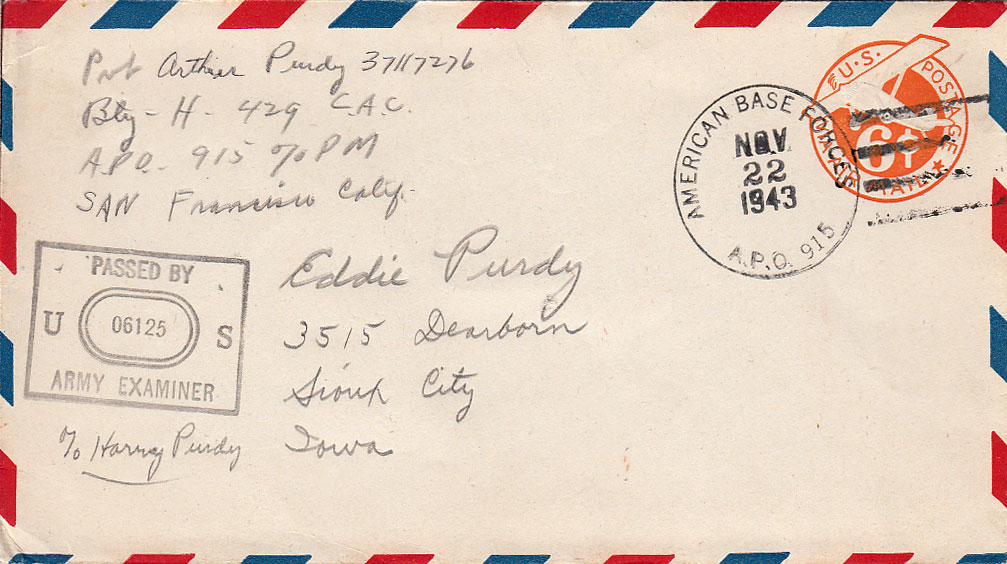 Pvt Arthur Purdy 37117276
Bty - H - 429 C.A.C.
A.P.O. 915 c/o PM
SAN Francisco Calif.
AMERICAN BASE FORCES
NOV
22
1943
A.P.O. 915
U.S. POSTAGE
6¢
AIR MAIL
PASSED BY
U 06125 S
ARMY EXAMINER
Eddie Purdy
3515 Dearborn
Sioux City
Iowa
c/o Harry Purdy